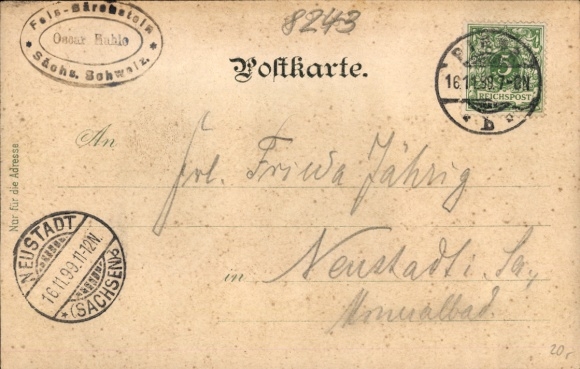 8243
Fels-Bärenstein
Oscar Hahle
* Sächs. Schweiz. *
Postkarte.
5
REICHSPOST
16.11.99.7-8N.
* b *
An
Frl. Frieda Jährig
Nur für die Adresse
NEUSTADT
16.11.99.11-12N.
* (SACHSEN) b
in
Neustadt i. Sa.,
Mineralbad.
20,-